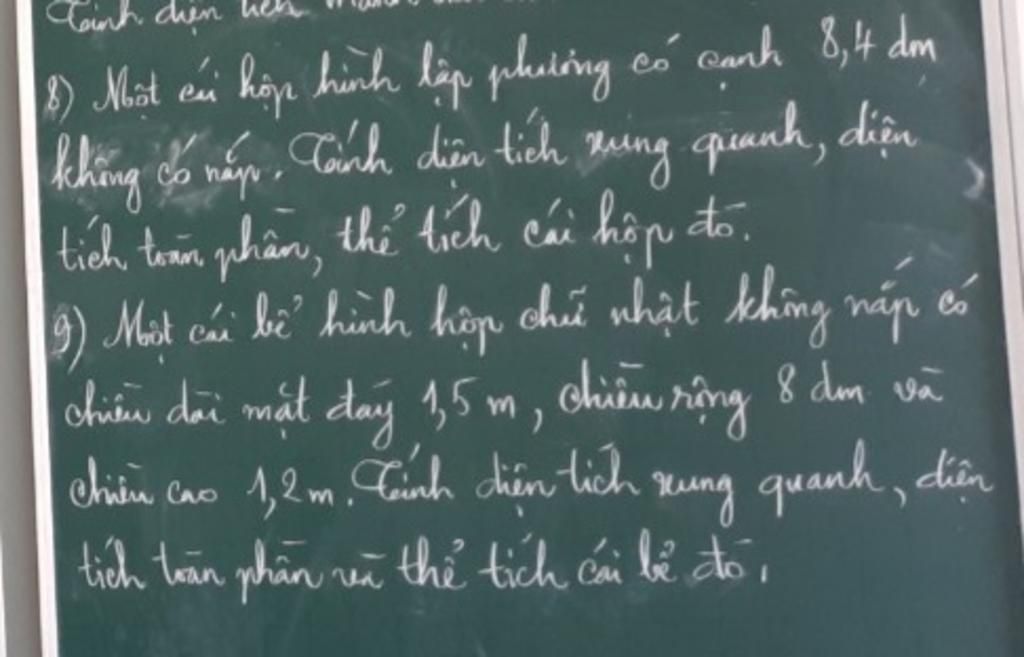 Tính diện tích
8) Một cái hộp hình lập phương có cạnh 8,4 dm
không có nắp. Tính diện tích xung quanh, diện
tích toàn phần, thể tích cái hộp đó.
9) Một cái bể hình hộp chữ nhật không nắp có
chiều dài mặt đáy 1,5 m, chiều rộng 8 dm và
chiều cao 1,2 m. Tính diện tích xung quanh, diện
tích toàn phần và thể tích cái bể đó.